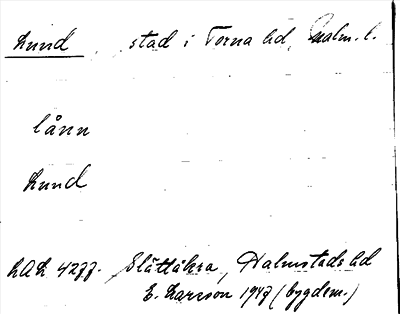 Lund stad i Torna hd, Malm. l.
lånn
Lund
LAL 4277. Slättåkra, Halmstads hd
E. Larsson 1947 (bygdem.)